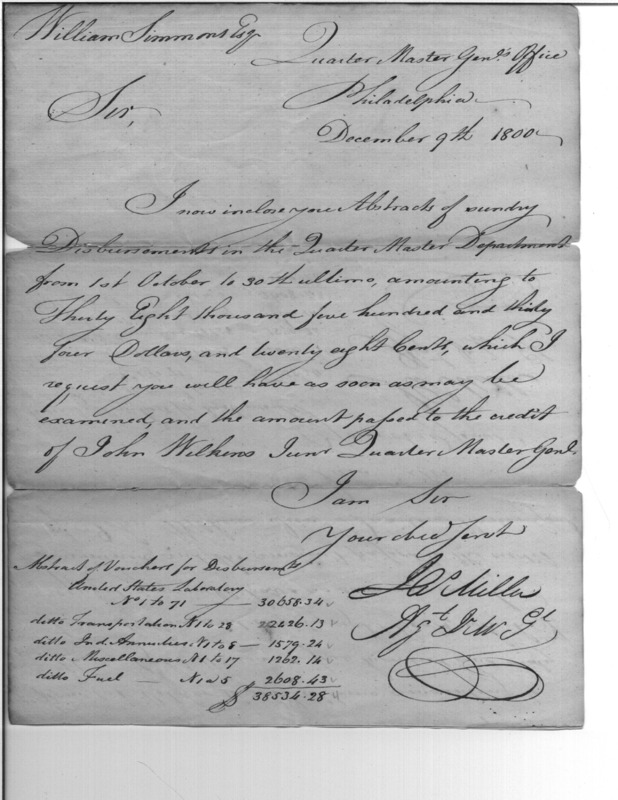 William Simmons Esq
Quarter Master Genl's Office
Philadelphia
Sir,
December 9th 1800
I now inclose you Abstracts of sundry
Disbursements in the Quarter Master Department
from 1st October to 30th ultimo, amounting to
Thirty Eight thousand five hundred and thirty
four Dollars, and twenty eight Cents, which I
request you will have as soon as may be
examined, and the amount passed to the credit
of John Wilkens Junr Quarter Master Genl.
I am Sir
Your obed Servt
Abstract of Vouchers for Disbursemts
United States Laboratory
No 1 to 71 — 30658.34
ditto Transportation N 1 to 28 2426.13
ditto Ind: Annuities N 1 to 8 — 1579.24
ditto Miscellaneous N 1 to 17 1262.14
ditto Fuel — N 1 a 5 2608.43
$ 38534.28
Miller